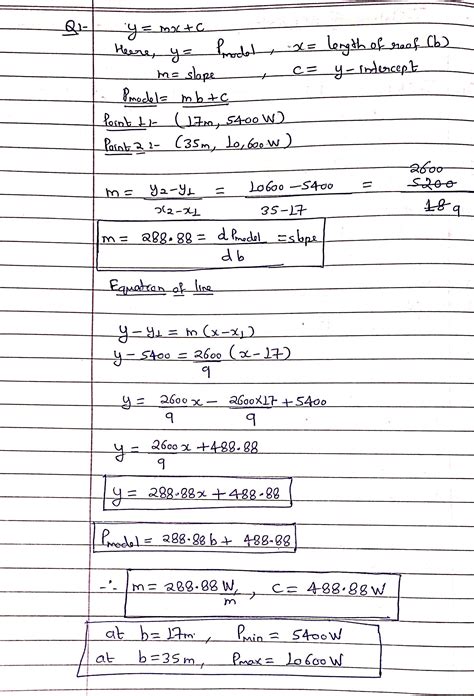 Q1:- y = mx + c
Here, y = Pmodel, x = length of roof (b)
m = slope, c = y-intercept
Pmodel = mb + c
Point 1:- (17m, 5400 W)
Point 2:- (35m, 10,600 W)
m = y2-y1/x2-x1 = 10600-5400/35-17 = 2600 5200/18 9
m = 288.88 = dPmodel/db = slope
Equation of line
y-y1 = m(x-x1)
y-5400 = 2600/9 (x-17)
y = 2600x/9 - 2600x17/9 + 5400
y = 2600x/9 + 488.88
y = 288.88x + 488.88
Pmodel = 288.88b + 488.88
∴ m = 288.88 W/m, c = 488.88 W
at b = 17m, Pmin = 5400W
at b = 35m, Pmax = 10600W